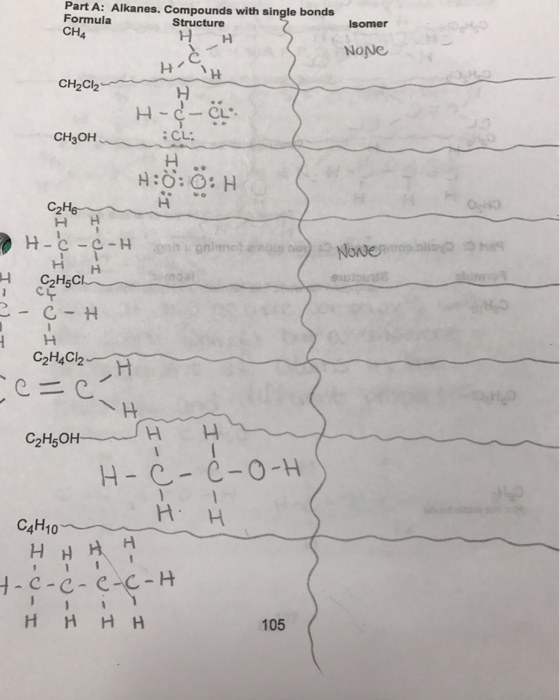 Part A: Alkanes. Compounds with single bonds
Formula Structure Isomer
CH4
H H
C
H H
None
CH2Cl2
H
H - C - CL
CL
CH3OH
H
H:O:O:H
H
C2H6
H H
H - C - C - H
H H
None
C2H5Cl
H CL
C - C - H
H H
C2H4Cl2
H
C = C
H
C2H5OH
H H
H - C - C - O - H
H H
C4H10
H H H H
H - C - C - C - C - H
H H H H
105